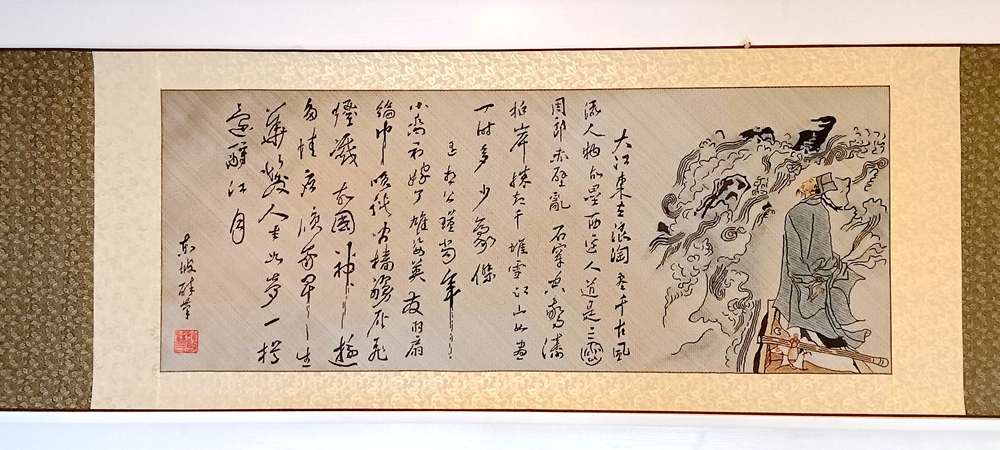 大江東去浪淘盡千古風
流人物故壘西邊人道是三國
周郎赤壁亂石穿空驚濤
拍岸捲起千堆雪江山如畫
一時多少豪傑
遙想公瑾當年
小喬初嫁了雄姿英發羽扇
綸巾談笑間檣艣灰飛
煙滅故國神遊
多情應笑我早生
華髮人生如夢一樽
還酹江月
東坡醉筆